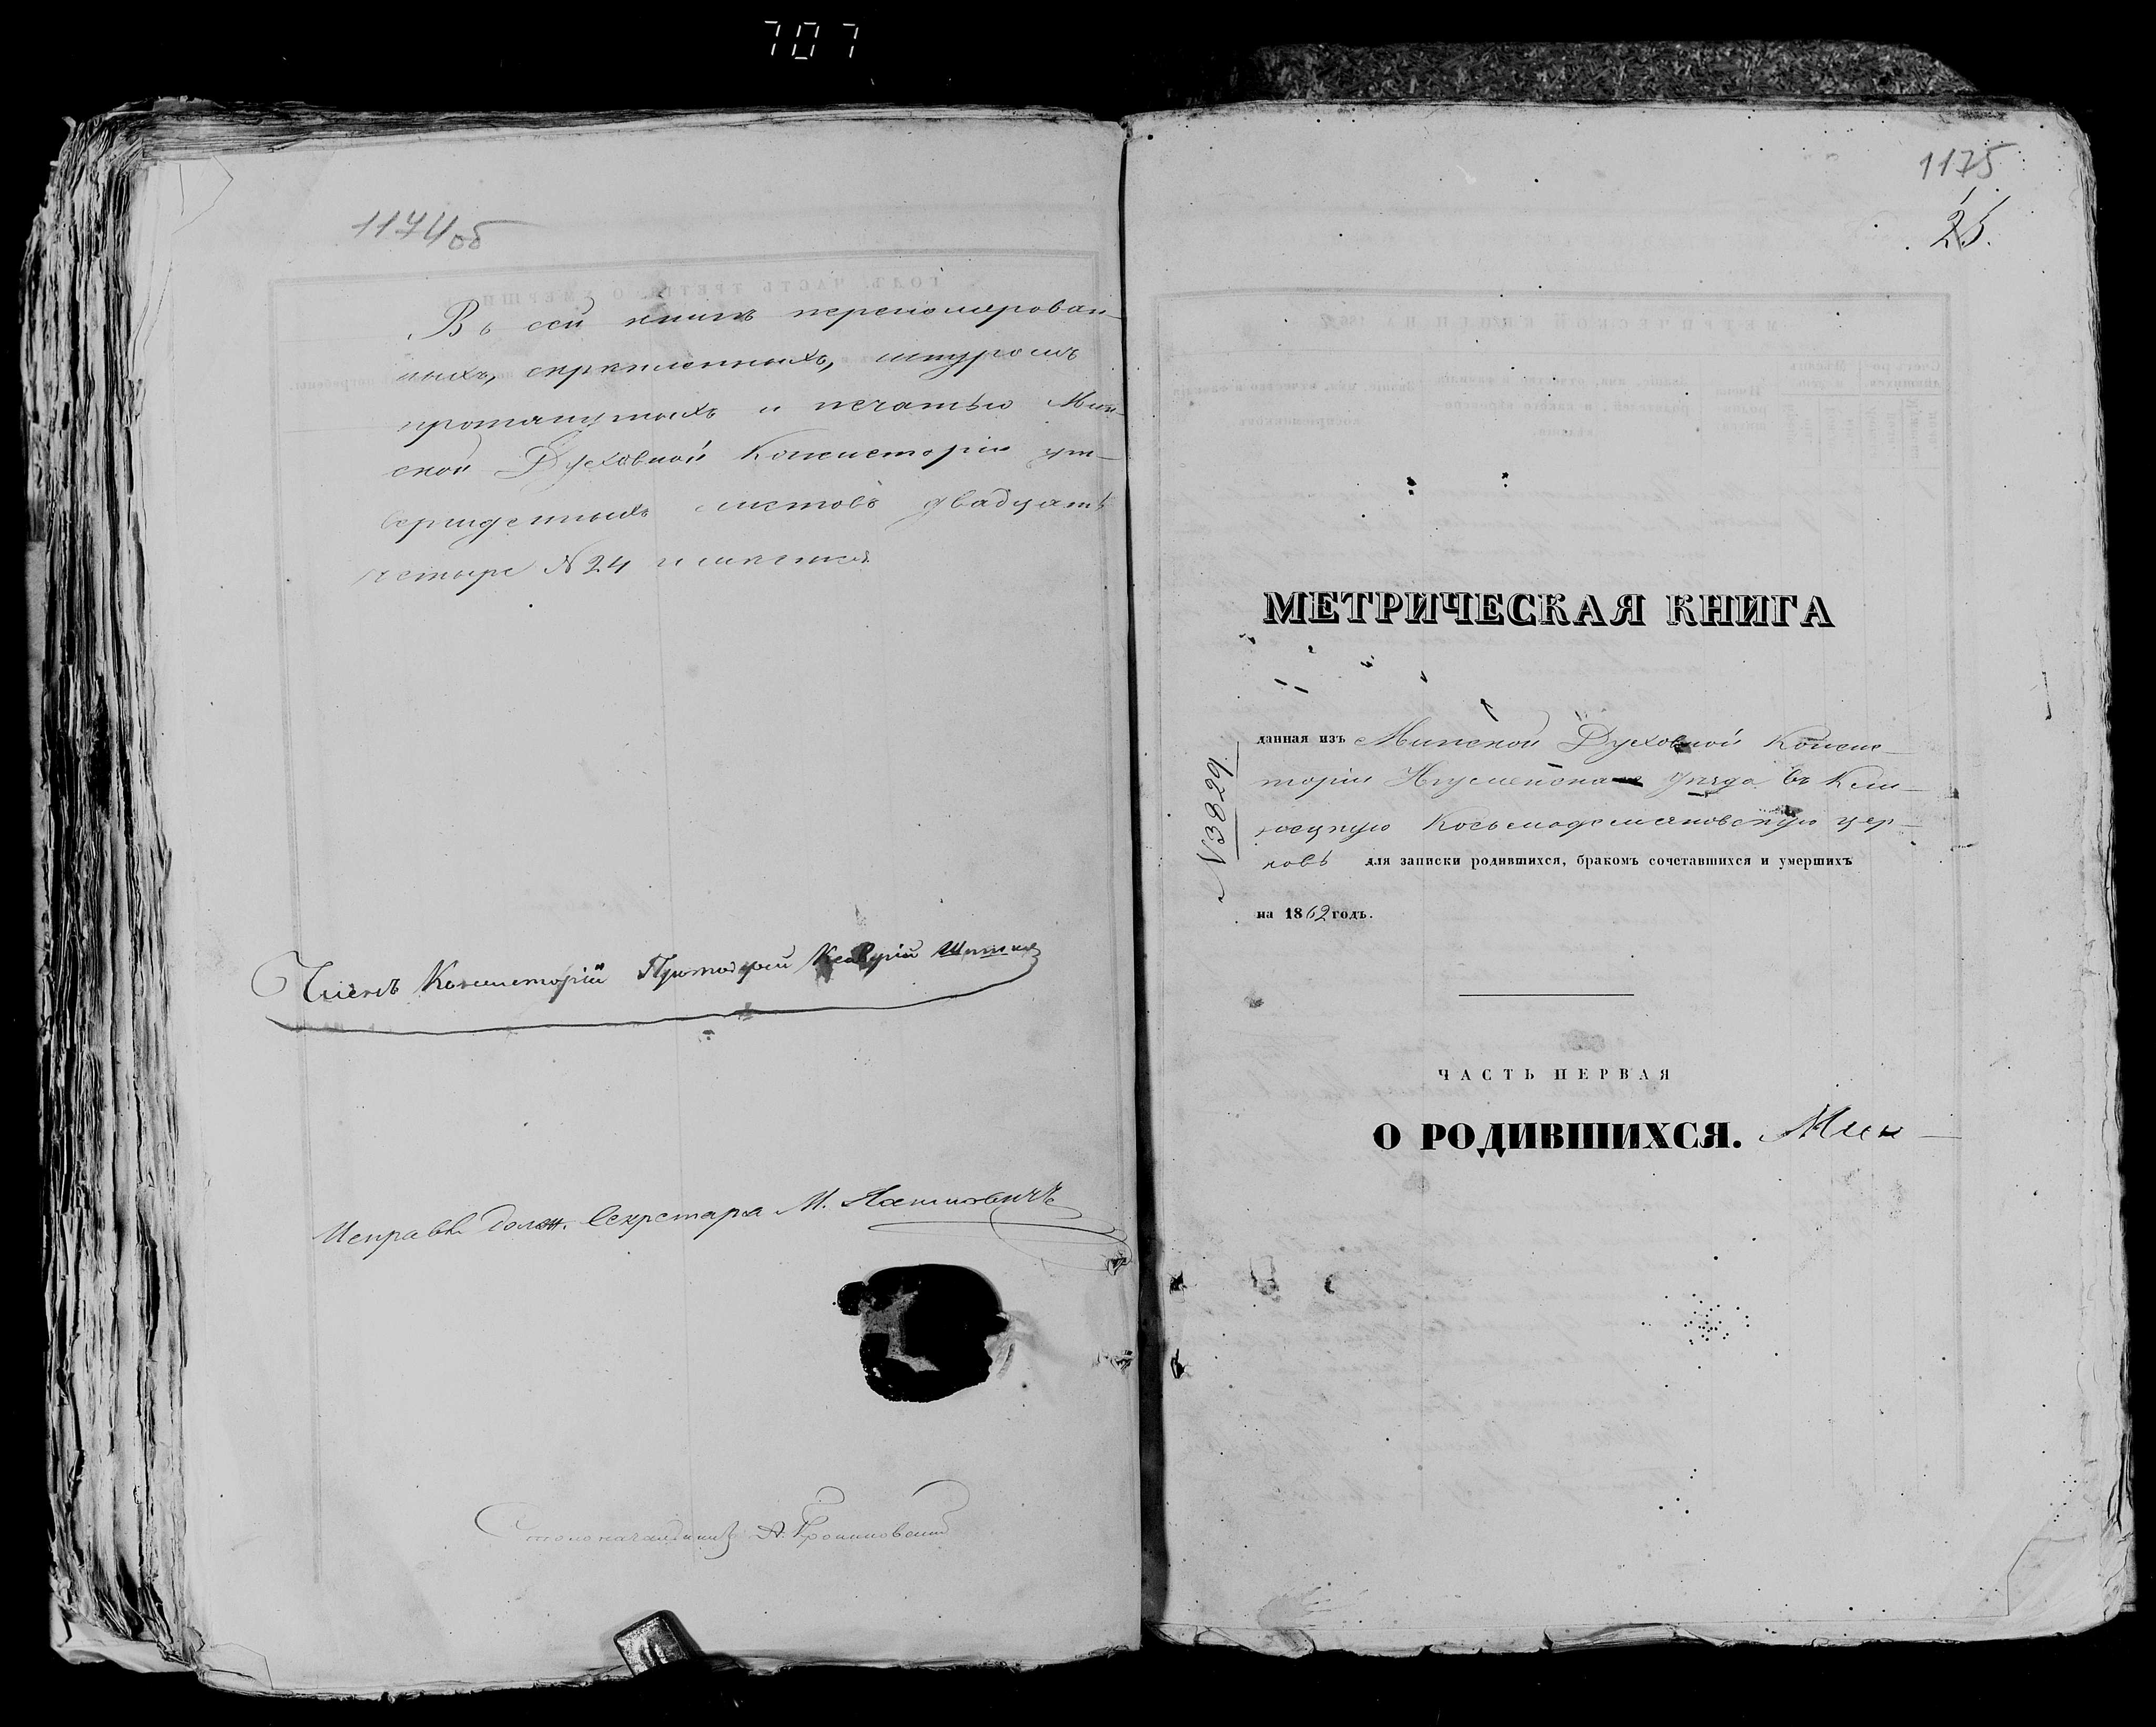 707
1174об
Въ сей книгѣ перенумерован-
ныхъ, скрѣпленныхъ, шнуромъ
протянутыхъ и печатью Мин-
ской Духовной Консисторіи ут-
вержденныхъ листовъ двадцать
четыре № 24 имѣется
Членъ Консисторіи Протоіерей
Исправл. долж. Секретаря М.
Столоначальникъ А.
1175
25.
МЕТРИЧЕСКАЯ КНИГА
№ 3829.
данная изъ Минской Духовной Консис-
торіи Игуменска уѣзда въ
Косьмодемьяновскую цер-
ковь для записки родившихся, бракомъ сочетавшихся и умершихъ
на 1862 годъ.
ЧАСТЬ ПЕРВАЯ
О РОДИВШИХСЯ. Мин-